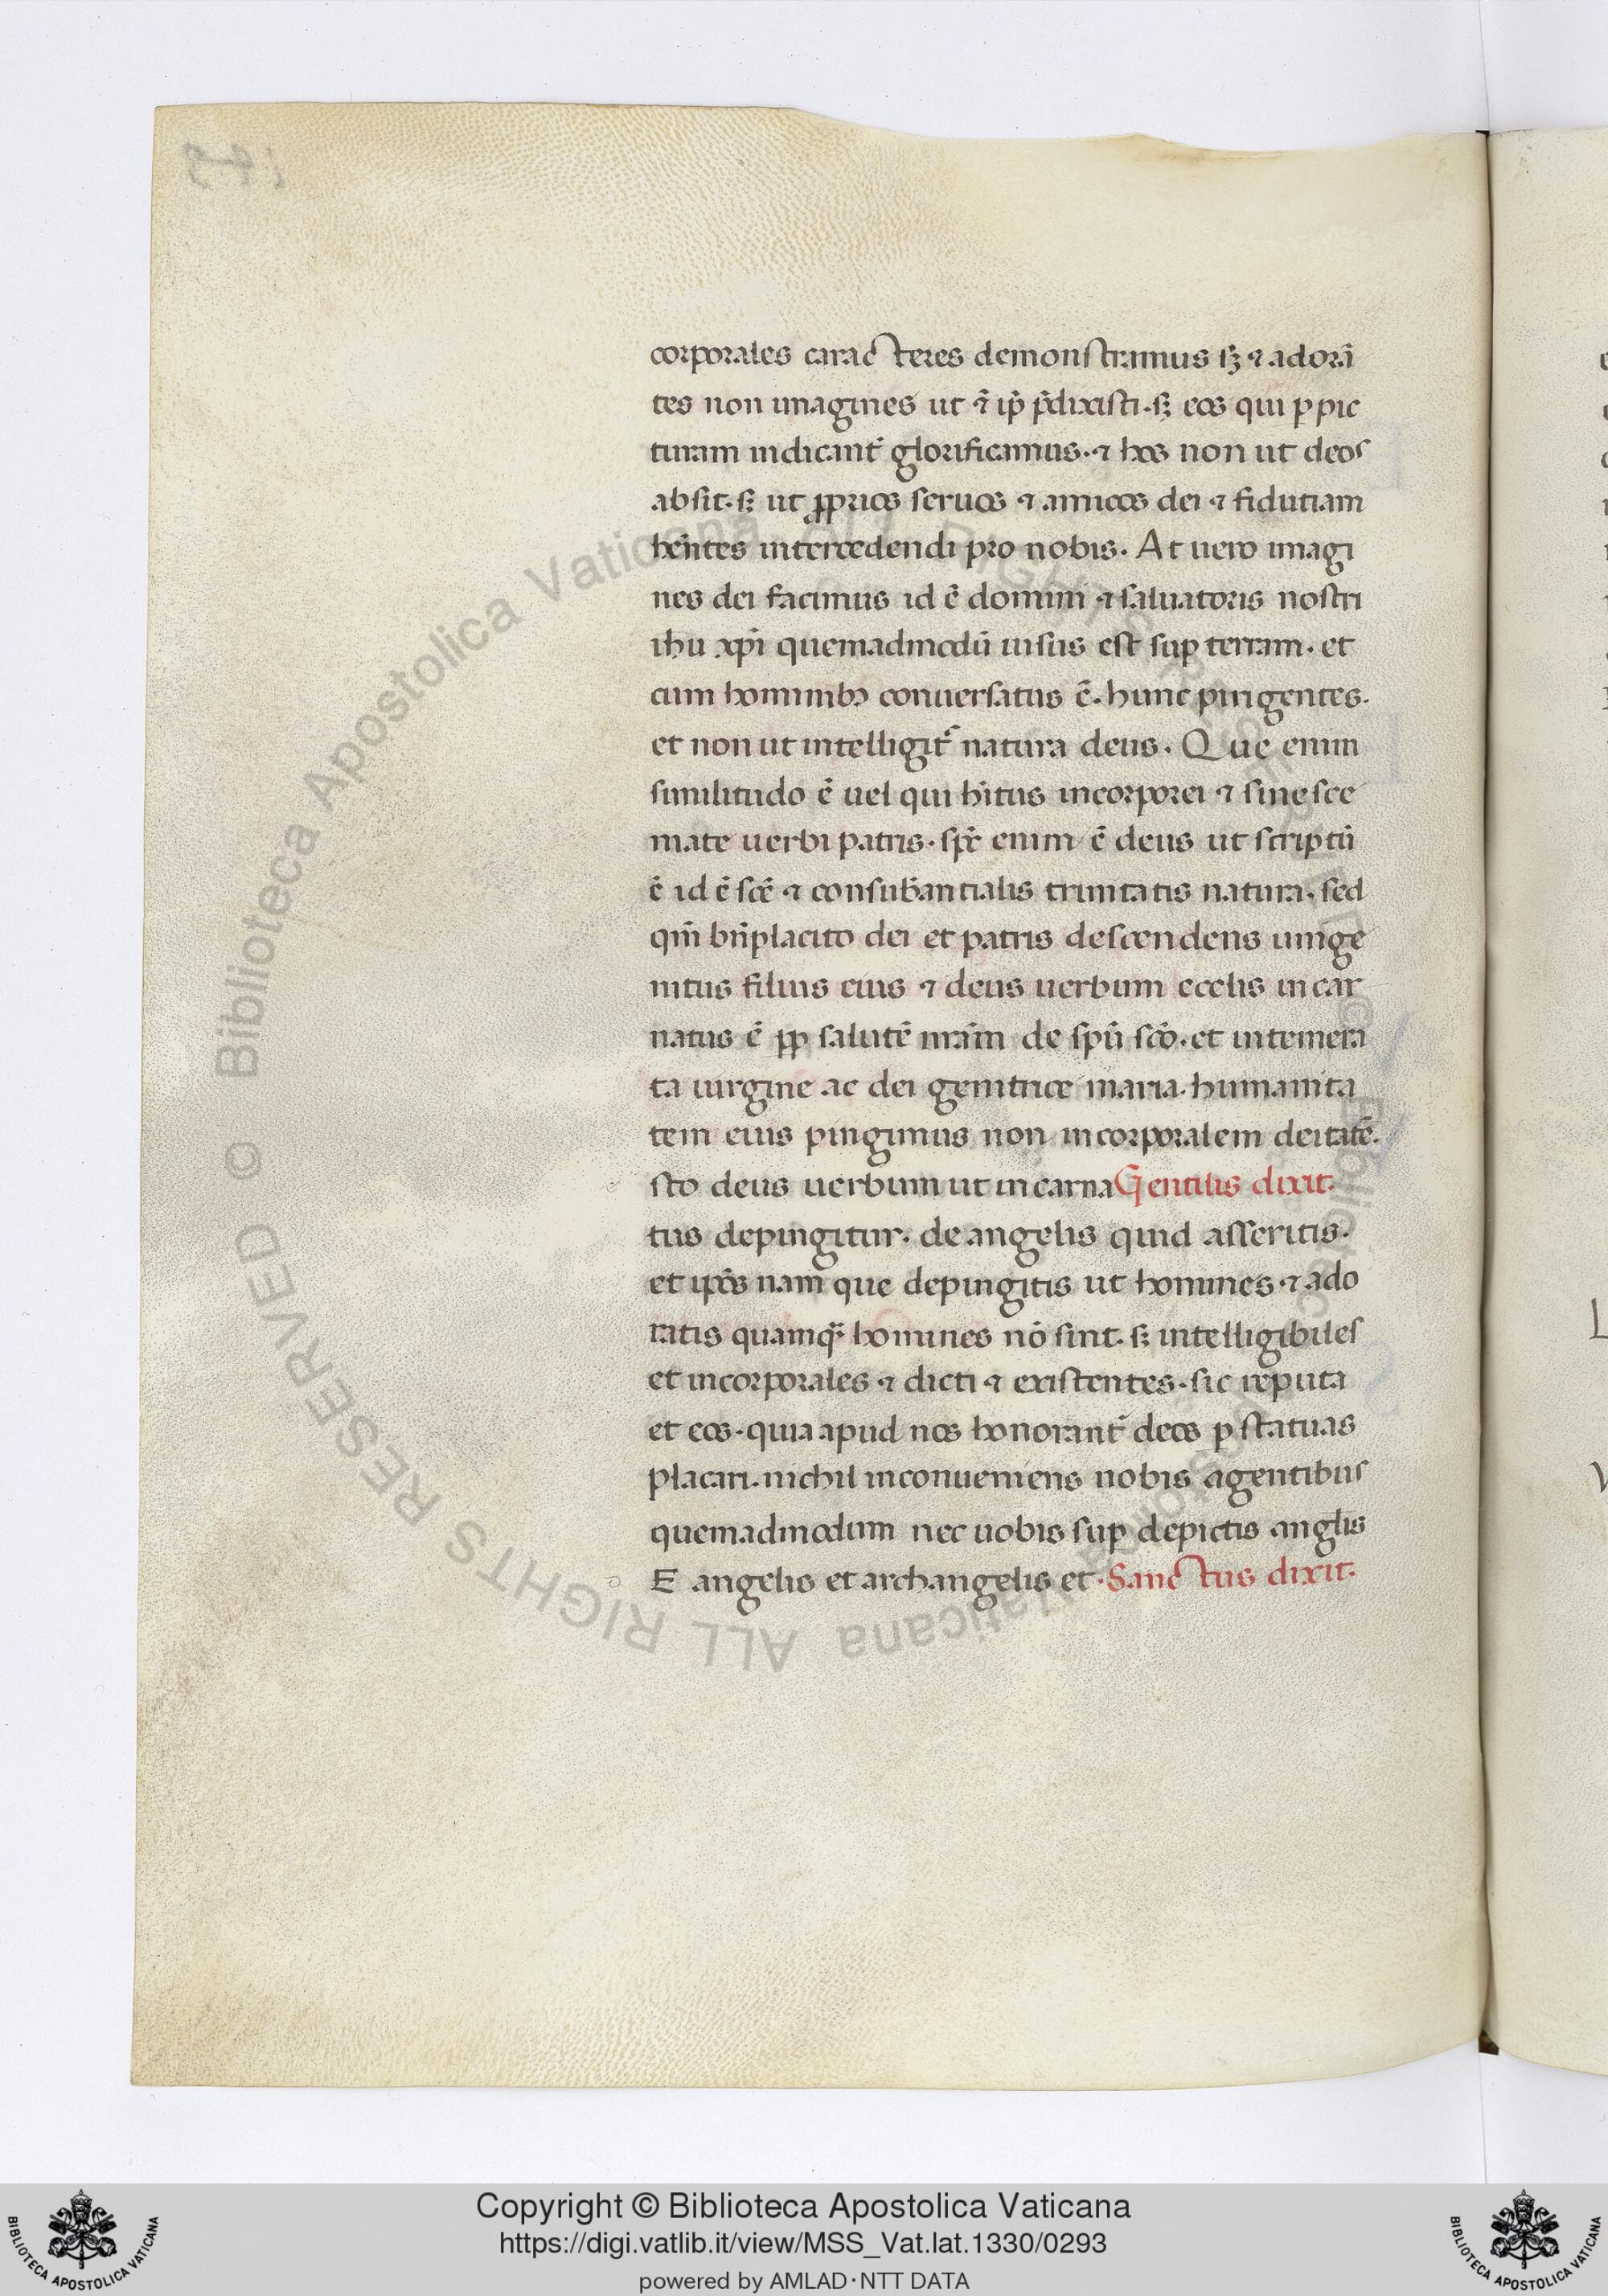 corporales caracteres demonstramus sꝫ ⁊ adorā
tes non imagines ut ⁊̄ ip̄ p̄dixisti · sꝫ eos qui ꝑ pic
turam indicant᷑ glorificamus · ⁊ hos non ut deos
absit · sꝫ ut ꝓprios seruos ⁊ amicos dei ⁊ fidutiam
hn̄tes intercedendi pro nobis . At uero imagi
nes dei facimus id ē domini ⁊ saluatoris nostri
ihu xp̄i quemadmodū uisus est suꝑ terram . et
cum hominibꝫ conuersatus ē . hunc pingentes .
et non ut intelligit᷑ natura deus . Que enim
similitudo ē uel qui hītus incorporei ⁊ sine sce
mate uerbi patris · sp̄c enim ē deus ut scriptū
ē id ē scē ⁊ consub̄antialis trinitatis natura . sed
qm̄ bn̄placito dei et patris descendens unige
nitus filius eius ⁊ deus uerbum ecelis incar
natus ē ꝓp salutē nrām de spū scō . et intemera
ta uirgine ac dei genitrice maria · humanita
tem eius pingimus non incorporalem deitatē .
sto deus uerbum ut incarna Gentilis dixit .
tus depingitur . de angelis quid asseritis .
et ip̄os nam que depingitis ut homines · ⁊ ado
ratis quamq̄ homines nō sint . sꝫ intelligibiles
et incorporales ⁊ dicti ⁊ existentes · sic reputa
et eos · quia apud nos honorant᷑ deos ꝑ statuas
placari . nichil inconueniens nobis agentibus
quemadmodum nec uobis suꝑ depictis anglis
E angelis et archangelis et · Sanctus dixit .
Copyright © Biblioteca Apostolica Vaticana
https://digi.vatlib.it/view/MSS_Vat.lat.1330/0293
powered by AMLAD · NTT DATA